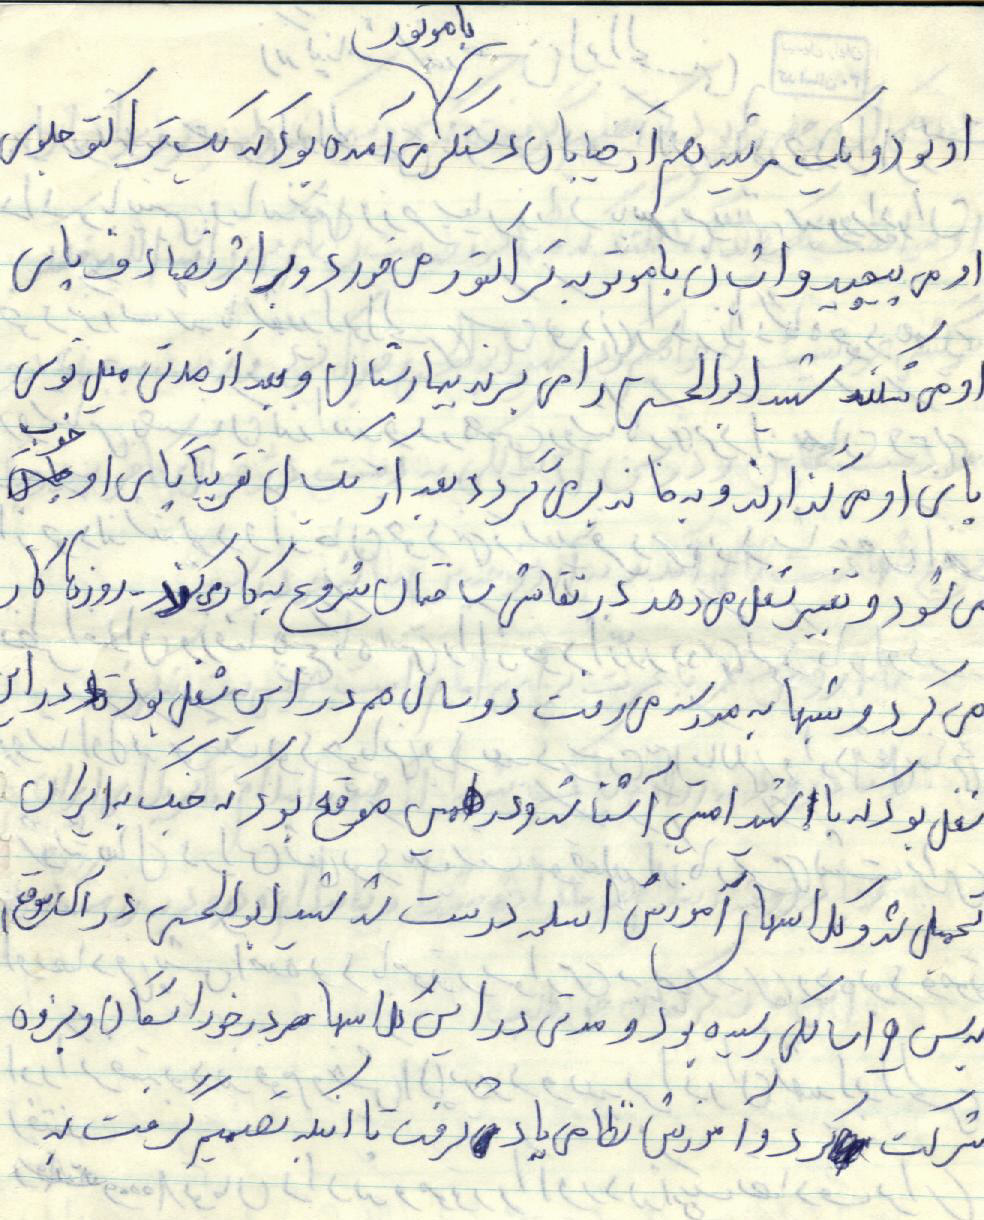 باموتور
او بود و یک مرتبه هم از خیابان دستگری می آمده بود که یک تراکتور جلوی
او می پیچید و ایشان با موتور به تراکتور می خورد و بر اثر تصادف پای
او می شکند شهید ابوالحسن را می برند بیمارستان و بعد از مدتی میل توی
خوب
پای او می گذارند و به خانه برمی گردد بعد از یکسال تقریباً پای او
می شود و تغییر شغل می دهد در نقاشی ساختمان شروع به کار می کند - روزها کار
می کرد و شبها به مدرسه می رفت دو سال هم در این شغل بود در این
شغل بود که با شهید امینی آشنا شد و در همین موقع بود که جنگ به ایران
تحمیل شد و کلاسهای آموزش اسلحه درست شد شهید ابوالحسن در آن موقع
به سن 19 سالگی رسیده بود و مدتی در این کلاسها در خوراسگان و بزوه
شرکت کرد و آموزش نظامی یاد گرفت تا اینکه تصمیم گرفت به